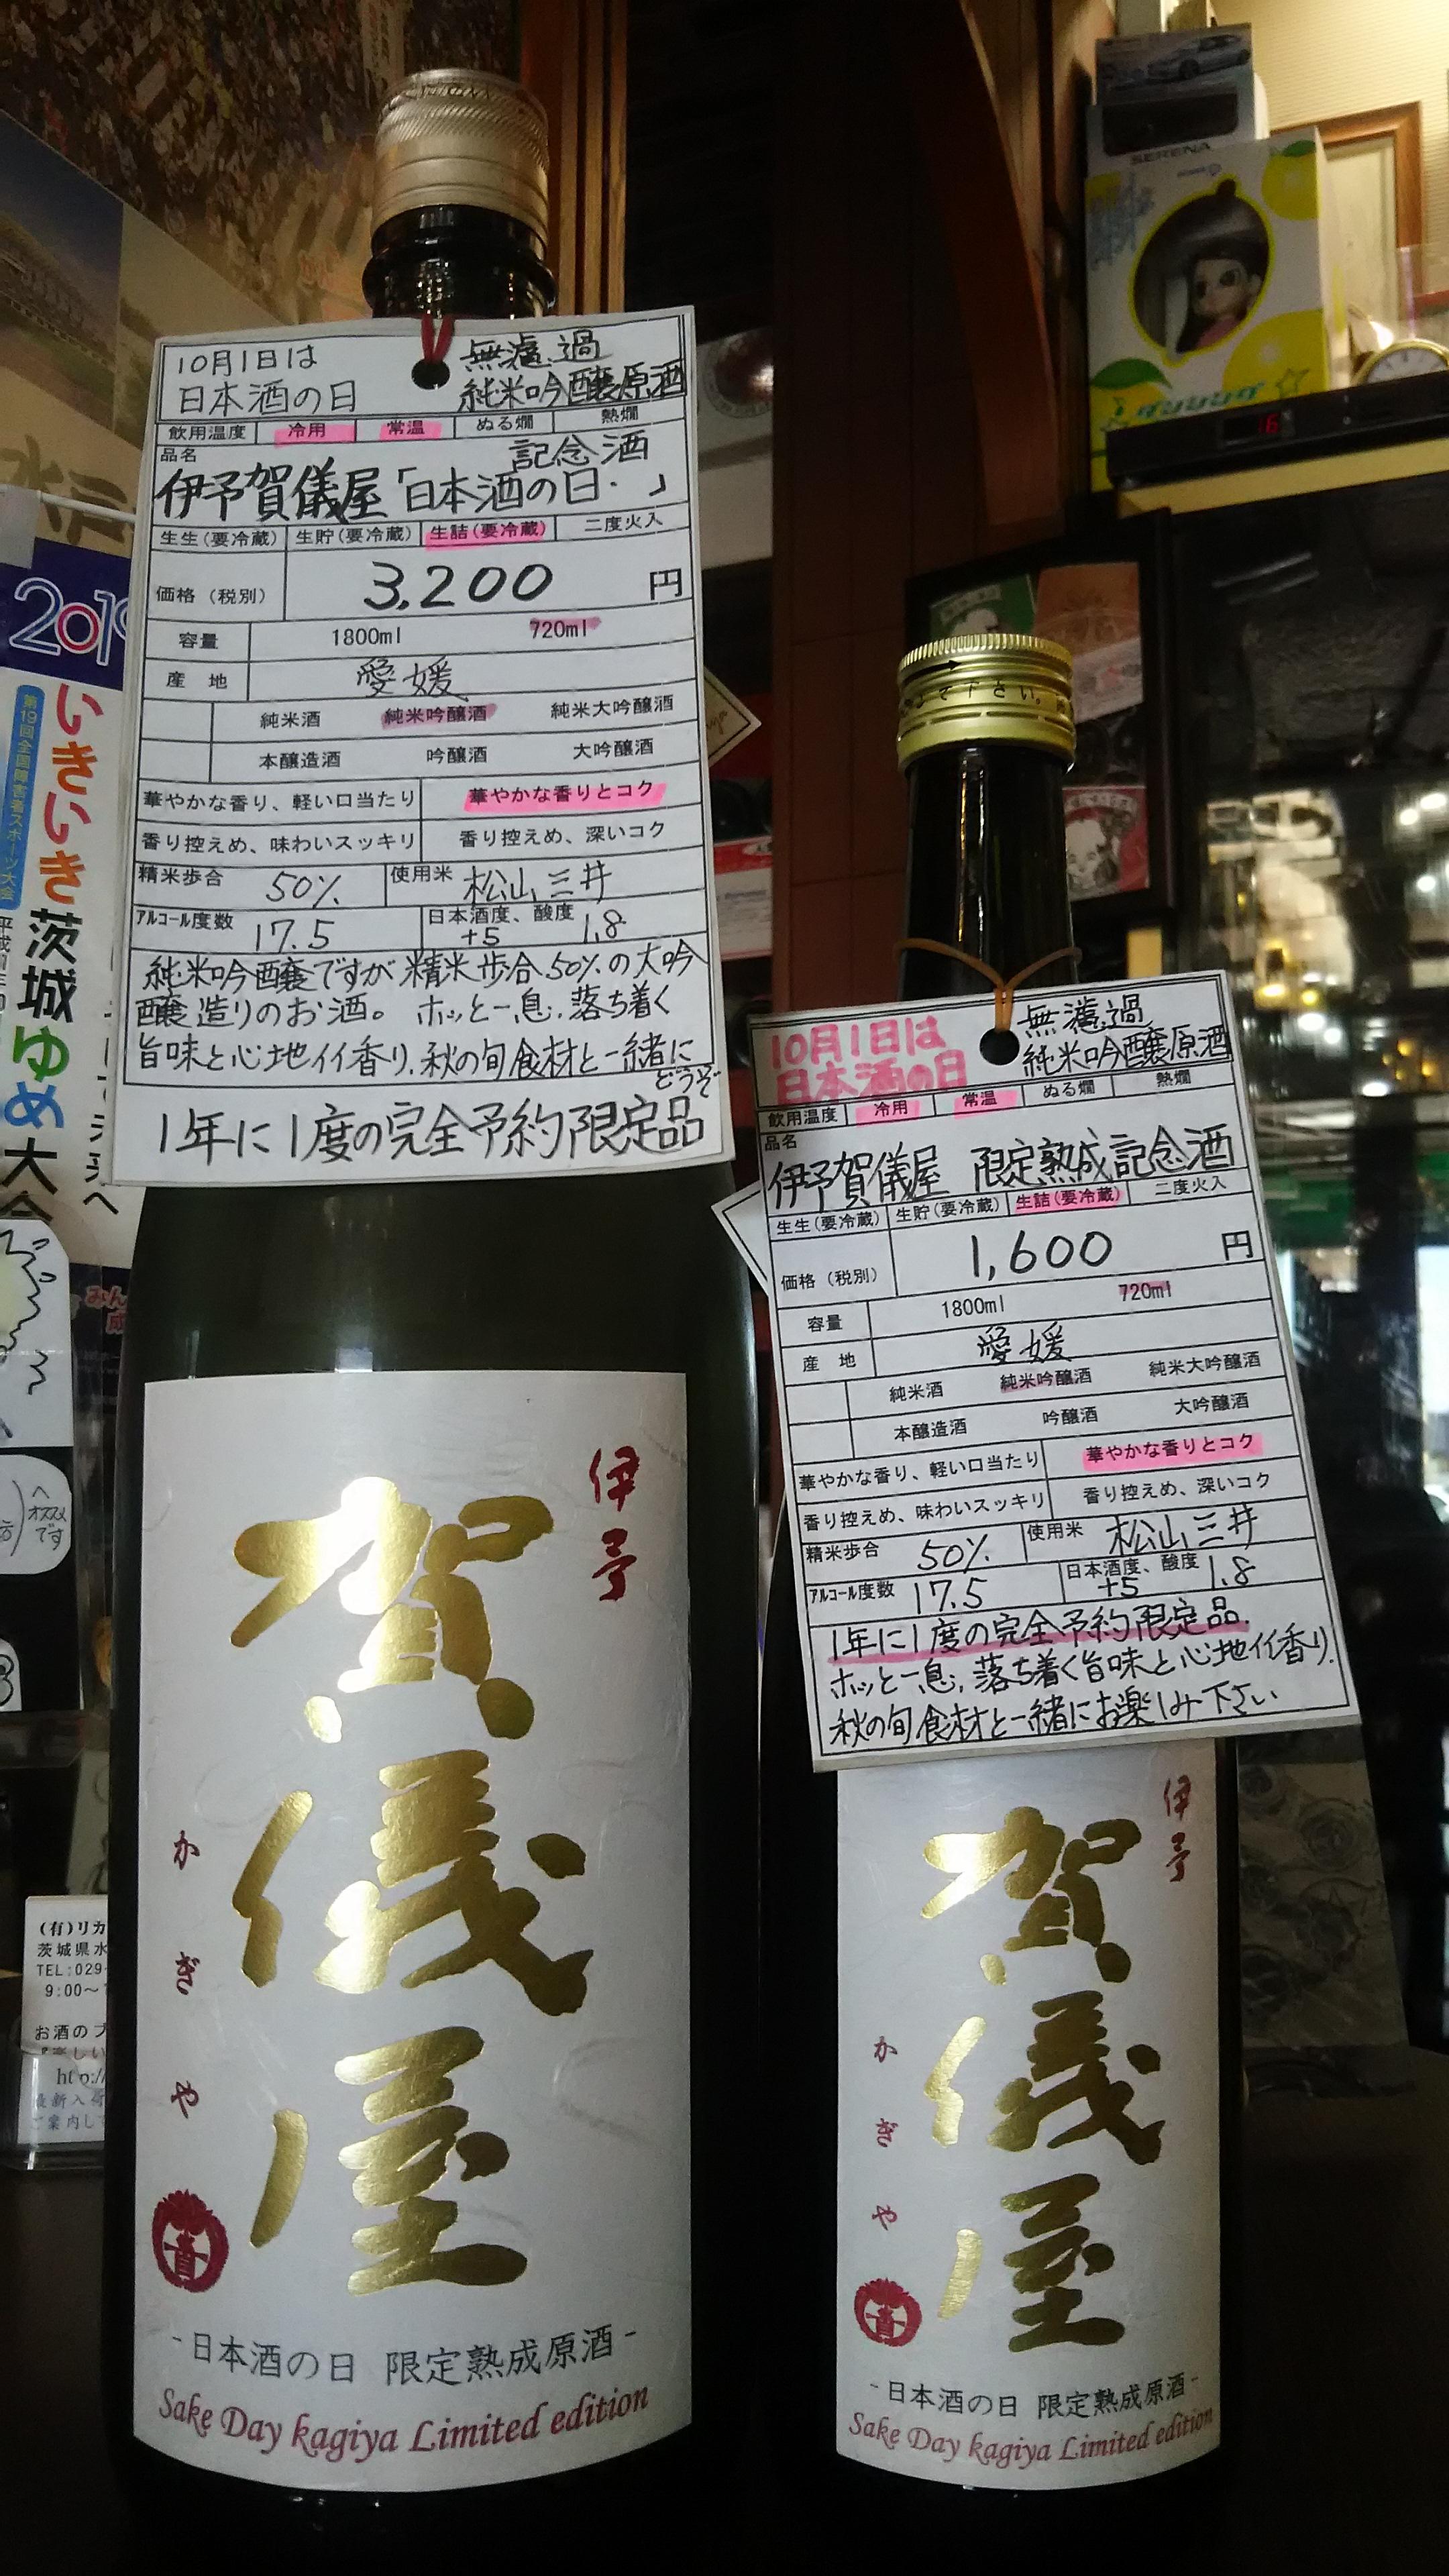 10月1日は
日本酒の日
無濾過
純米吟醸原酒
飲用温度 冷用 常温 ぬる燗 熱燗
品名
記念酒
伊予賀儀屋「日本酒の日・」
生生(要冷蔵) 生貯(要冷蔵) 生詰(要冷蔵) 二度火入
価格(税別) 3,200 円
容量 1800ml 720ml
産 地 愛媛
純米酒 純米吟醸酒 純米大吟醸酒
本醸造酒 吟醸酒 大吟醸酒
華やかな香り、軽い口当たり 華やかな香りとコク
香り控えめ、味わいスッキリ 香り控えめ、深いコク
精米歩合 50% 使用米 松山三井
アルコール度数 17.5 日本酒度、酸度 +5 1.8
純米吟醸ですが精米歩合50%の大吟
醸造りのお酒。ホッと一息、落ち着く
旨味と心地イイ香り、秋の旬食材と一緒に
どうぞ
1年に1度の完全予約限定品
伊予
賀儀屋
かぎや
-日本酒の日 限定熟成原酒-
Sake Day kagiya Limited edition
10月1日は
日本酒の日
無濾過
純米吟醸原酒
飲用温度 冷用 常温 ぬる燗 熱燗
品名
伊予賀儀屋 限定熟成記念酒
生生(要冷蔵) 生貯(要冷蔵) 生詰(要冷蔵) 二度火入
価格(税別) 1,600 円
容量 1800ml 720ml
産 地 愛媛
純米酒 純米吟醸酒 純米大吟醸酒
本醸造酒 吟醸酒 大吟醸酒
華やかな香り、軽い口当たり 華やかな香りとコク
香り控えめ、味わいスッキリ 香り控えめ、深いコク
精米歩合 50% 使用米 松山三井
アルコール度数 17.5 日本酒度、酸度 +5 1.8
1年に1度の完全予約限定品.
ホッと一息、落ち着く旨味と心地イイ香り.
秋の旬食材と一緒にお楽しみ下さい
伊予
賀儀屋
かぎや
-日本酒の日 限定熟成原酒-
Sake Day kagiya Limited edition
水戸
2019
第19回全国障害者スポーツ大会
いきいき茨城ゆめ大会
オススメ
です
(有)リカ
茨城県水
TEL:029-
9:00~
お酒のプ
http://
最新入荷
ご案内し
SERENA
16